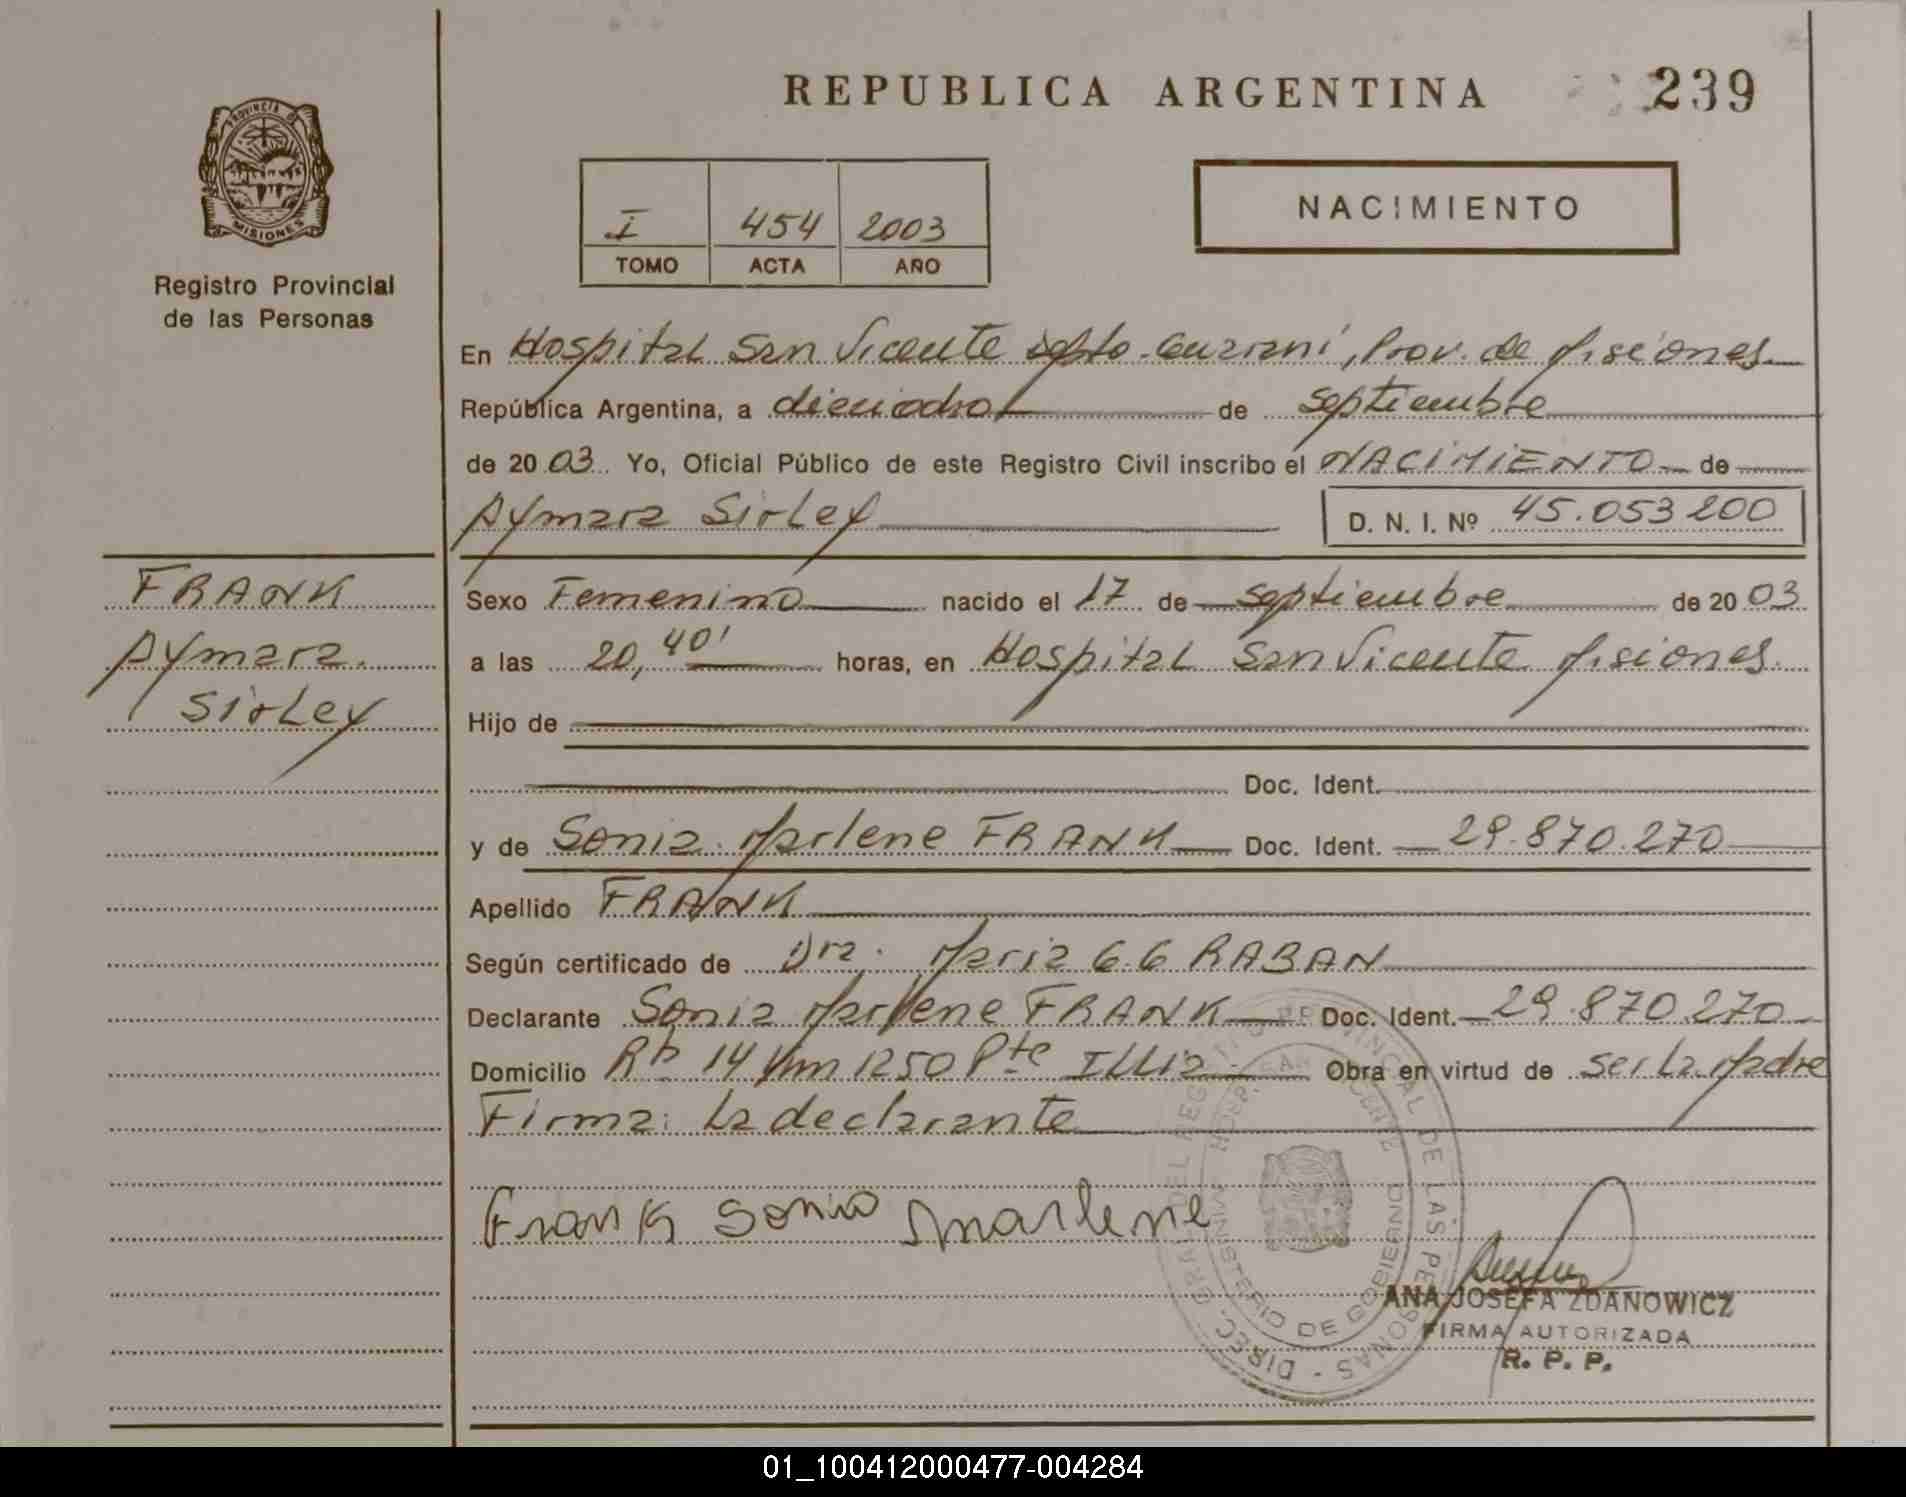 REPUBLICA ARGENTINA
239
PROVINCIA DE
MISIONES
Registro Provincial
de las Personas
I 454 2003
TOMO ACTA AÑO
NACIMIENTO
En Hospital San Vicente Depto. Guaraní, Prov. de Misiones
República Argentina, a dieciocho de septiembre
de 2003 Yo, Oficial Público de este Registro Civil inscribo el NACIMIENTO de
Aymara Sirley D. N. I. Nº 45.053 200
FRANK
Aymara
Sirley
Sexo Femenino nacido el 17 de septiembre de 2003
a las 20,40' horas, en Hospital San Vicente Misiones.
Hijo de
Doc. Ident.
y de Sonia Marlene FRANK Doc. Ident. 29.870.270
Apellido FRANK
Según certificado de Dra. Maria G.G RABAN
Declarante Sonia Marlene FRANK Doc. Ident. 29.870.270
Domicilio Rta 14 Km 1250 Pte Illia Obra en virtud de ser La Madre
Firma: La declarante
Frank Sonia Marlene
DIREC. GRAL. DEL REGISTRO PROVINCIAL DE LAS PERSONAS
MINISTERIO DE GOBIERNO
ANA JOSEFA ZDANOWICZ
FIRMA AUTORIZADA
R. P. P.
01_100412000477-004284